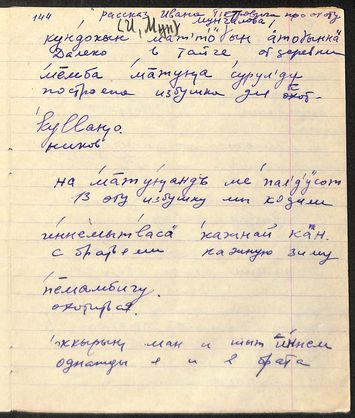 144 "рассказ Ивана Петровича про охоту
(И. Мунгалова)
кундоҡын мат'то̄ғын атоғынна̄
Далеко в тайге от деревни
мемба матуңа сурулди
построена избушка для охот-
куланҗо.
ников
на матуңандъ ме палдӱсот
В эту избушку мы ходили
иннемытваса̄ кажнай ка̄н.
с братьями каждую зиму
пемамбигу.
охотиться.
оккырың ман и шыт иннем
однажды я и 2 брата